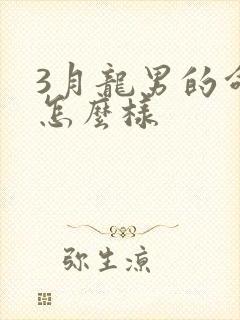 3月龍男的命
怎麼樣
弥生凉